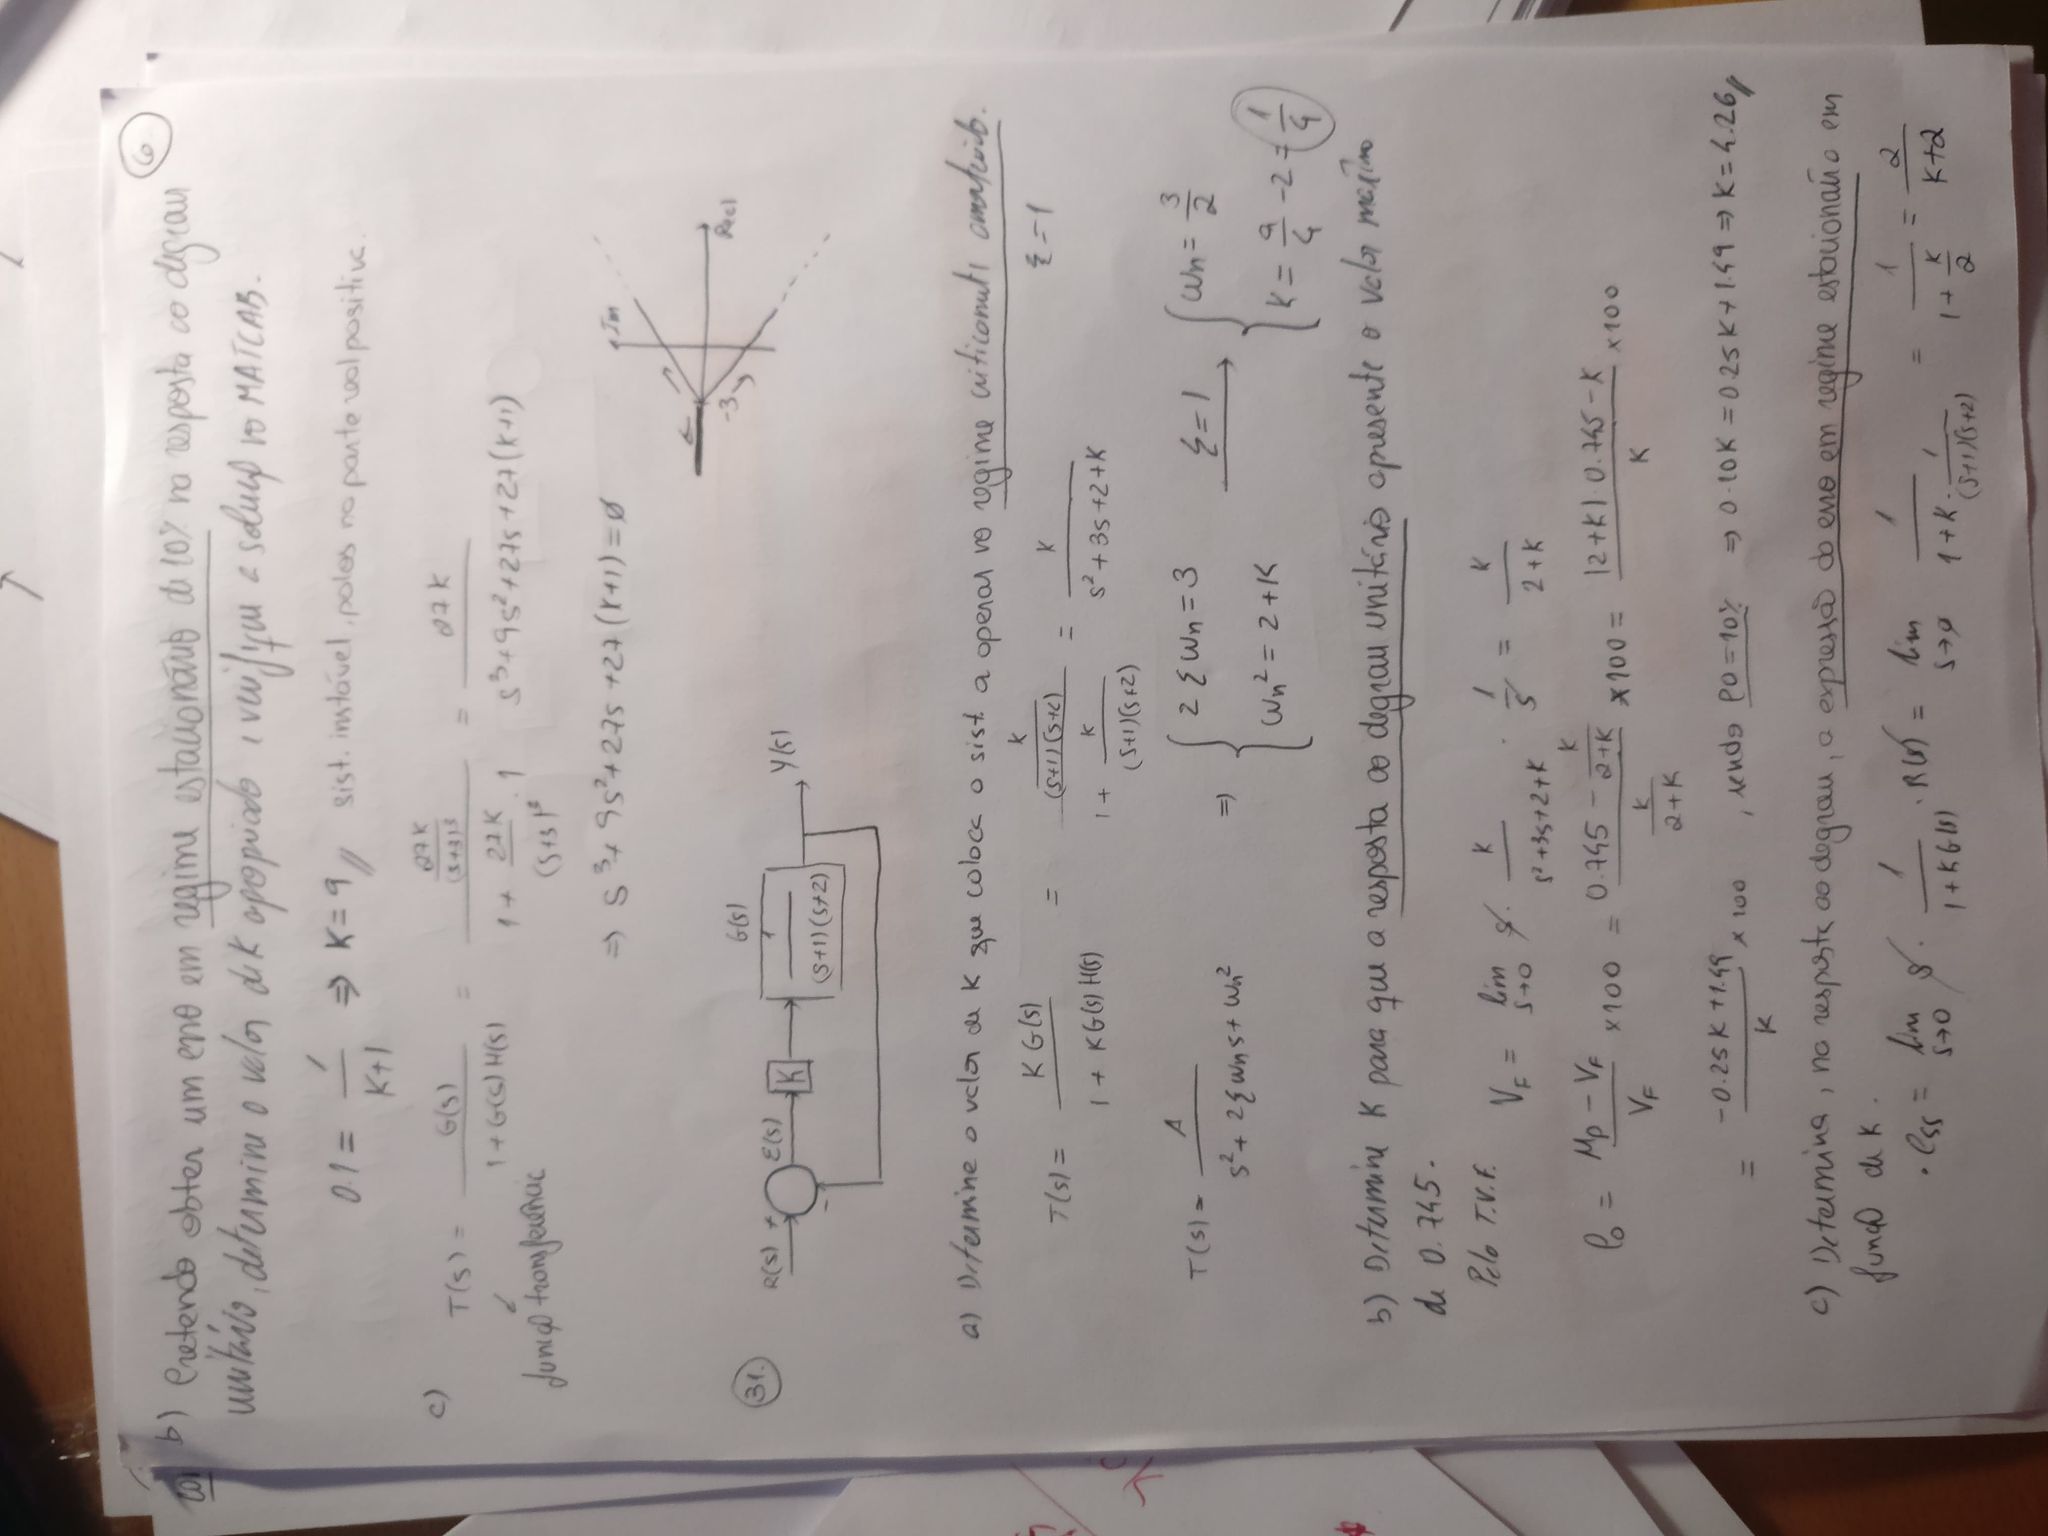 6
b) Pretendo obter um erro em regime estacionário de 10% na resposta ao degrau
unitário, determine o valor de K apropriado e verifique a solução no MATLAB.
0.1 = 1/(K+1) ⇒ K = 9 // sist. instável, polos na parte real positiva.
c) T(s) = G(s)/(1+G(s)H(s)) = (27K/(s+3)³)/(1 + 27K/(s+3)³ · 1) = 27K/(s³+9s²+27s+27(K+1))
função transferência
⇒ s³+9s²+27s+27(K+1) = ø
Im
-3
Real
31.
R(s) + - E(s) K G(s) 1/((s+1)(s+2)) Y(s)
a) Determine o valor de K que coloca o sist. a operar no regime criticamente amortecido.
ξ=1
T(s) = KG(s)/(1+KG(s)H(s)) = (K/((s+1)(s+2)))/(1 + K/((s+1)(s+2))) = K/(s²+3s+2+K)
T(s) = A/(s²+2ξωn s+ωn²) ⇒ { 2ξωn = 3 ; ωn² = 2+K ξ=1 → { ωn = 3/2 ; K = 9/4 -2 = 1/4
b) Determine K para que a resposta ao degrau unitário apresente o valor maximo
de 0.745.
Pelo T.V.F. VF = lim s→0 s · K/(s²+3s+2+K) · 1/s = K/(2+K)
Po = (Mp - VF)/VF ×100 = (0.745 - K/(2+K))/(K/(2+K)) ×100 = ((2+K)·0.745-K)/K ×100
= (-0.25K+1.49)/K ×100 , sendo PO=10% ⇒ 0.10K = 0.25K+1.49 ⇒ K=4.26 //
c) Determine, na resposta ao degrau, a expressão do erro em regime estacionário em
função de K.
· ess = lim s→0 s · 1/(1+KG(s)) · R(s) = lim s→ø 1/(1+K · 1/((s+1)(s+2))) = 1/(1+K/2) = 2/(K+2)